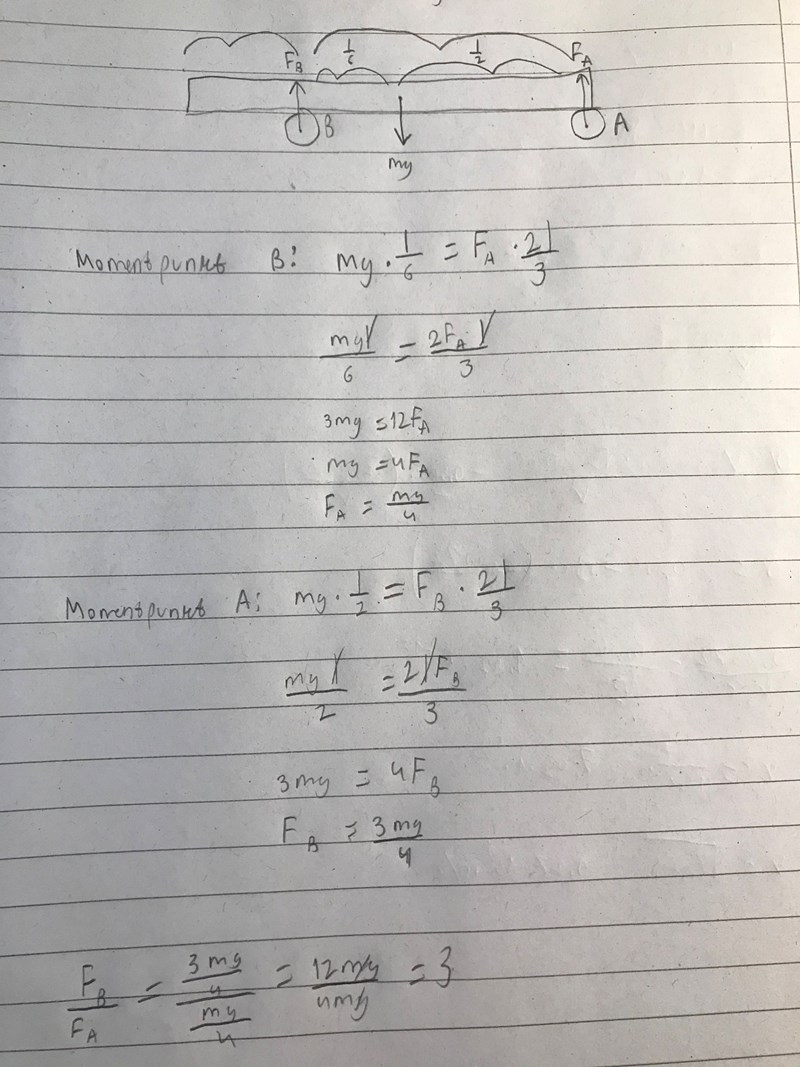 F_B l/6 l/2 F_A
B A
mg
Momentpunkt B: mg · l/6 = F_A · 2l/3
mgl/6 = 2F_A l/3
3mg = 12F_A
mg = 4F_A
F_A = mg/4
Momentpunkt A: mg · l/2 = F_B · 2l/3
mgl/2 = 2lF_B/3
3mg = 4F_B
F_B = 3mg/4
F_B/F_A = (3mg/4)/(mg/4) = 12mg/4mg = 3